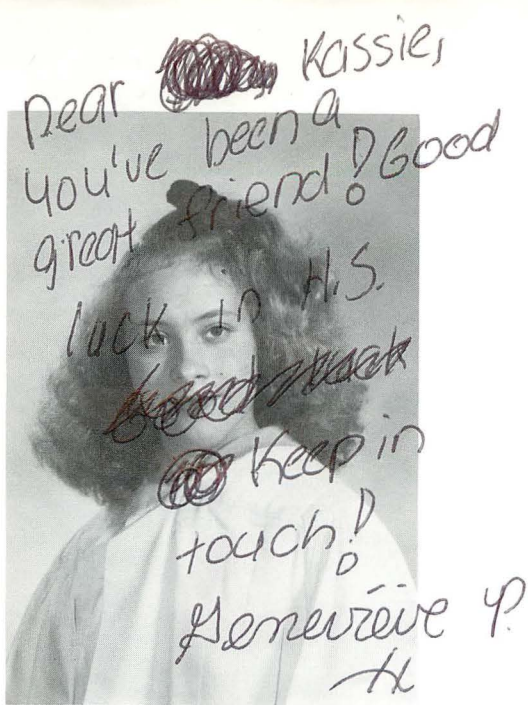 Dear Kassie,
you've been a
great friend! Good
luck in H.S.
Keep in
touch!
Genevieve P.